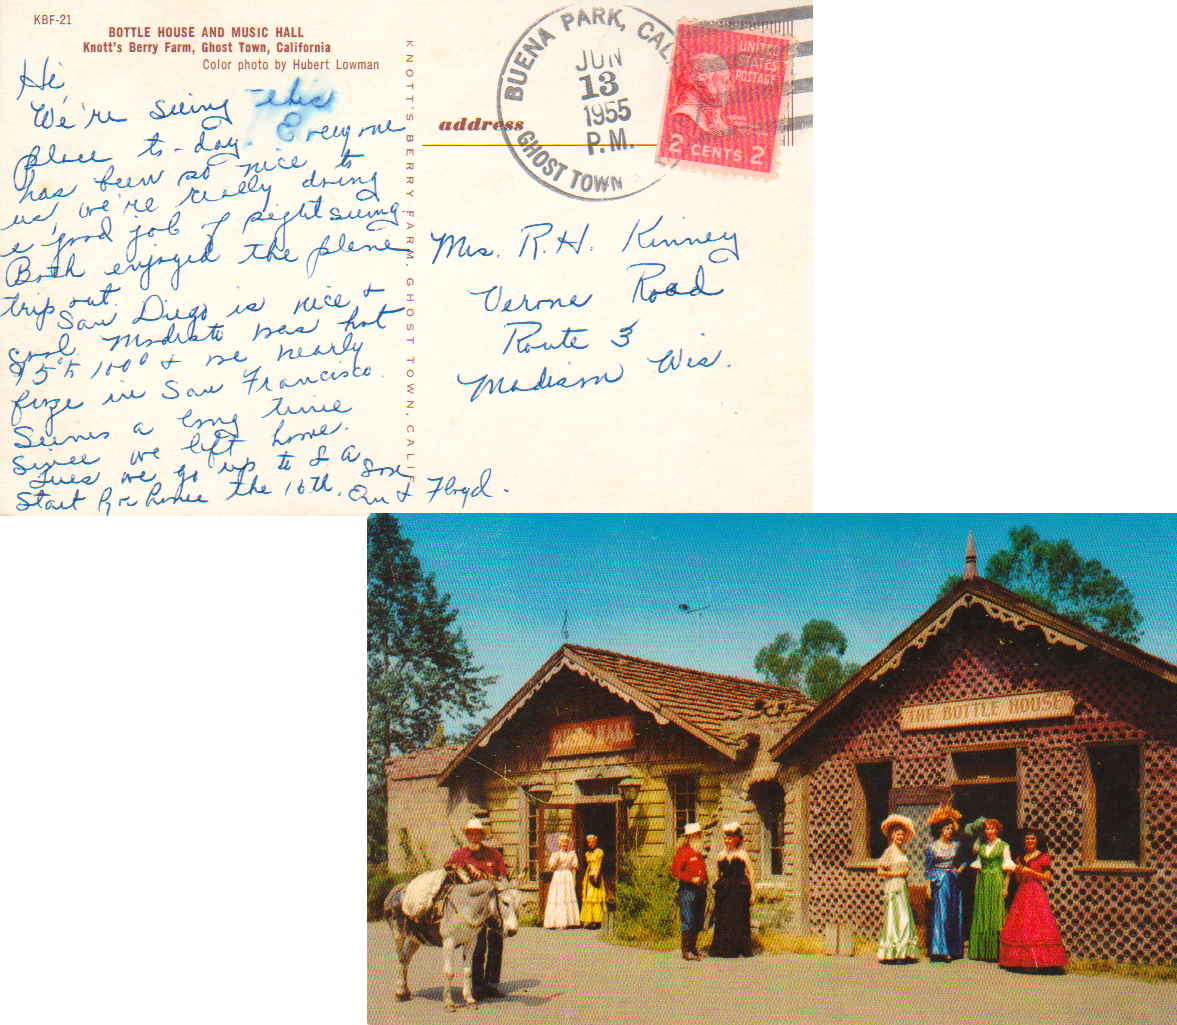 KBF-21
BOTTLE HOUSE AND MUSIC HALL
Knott's Berry Farm, Ghost Town, California
Color photo by Hubert Lowman
Hi
We're seeing this
place to-day. Everyone
has been so nice to
us we're really doing
a good job of sightseeing.
Both enjoyed the plane
trip out.
San Diego is nice &
cool. Modesto was hot
95° to 100° & we nearly
froze in San Francisco.
Seems a long time
Since we left home.
Tues we go up to L A
Start for home the 16th.
& Floyd.
KNOTT'S BERRY FARM, GHOST TOWN, CALIF.
address
BUENA PARK, CAL.
JUN
13
1955
P.M.
GHOST TOWN
UNITED
STATES
POSTAGE
2 CENTS 2
Mrs. R.H. Kinney
Verona Road
Route 3
Madison Wis.
THE BOTTLE HOUSE